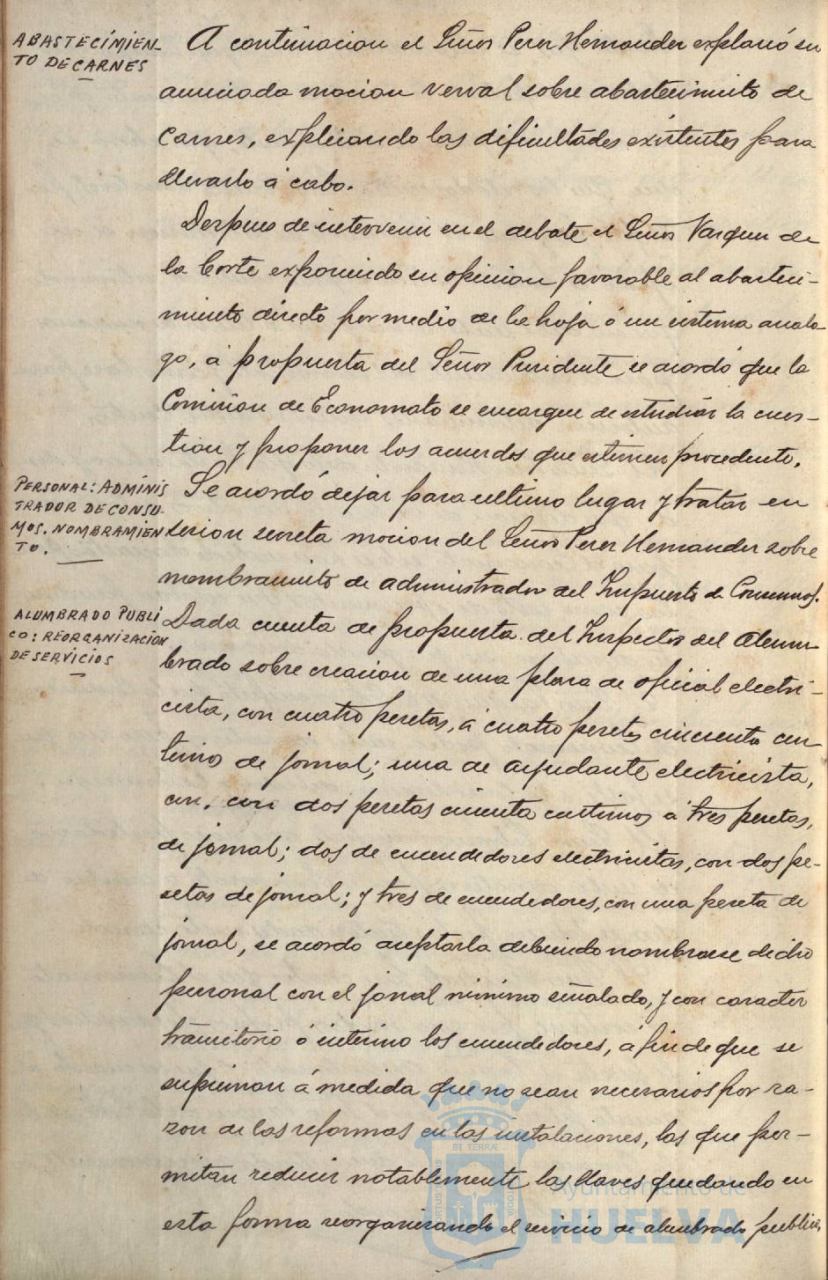 ABASTECIMIEN-
TO DE CARNES
A continuacion el Señor Perez Hernandez explanó su
anunciada mocion verval sobre abastecimiento de
carnes, explicando las dificultades existentes para
llevarlo á cabo.
Despues de intervenir en el debate el Señor Vazquez de
la Corte exponiendo su opinion favorable al abasteci-
miento directo por medio de la hoja ó un sistema analo-
go, á propuesta del Señor Presidente se acordó que la
Comision de Economato se encargue de estudiar la cues-
tion y proponer los acuerdos que estimen procedente.
PERSONAL: ADMINIS
TRADOR DE CONSU-
MOS. NOMBRAMIEN
TO.
Se acordó dejar para ultimo lugar y tratar en
sesion secreta mocion del Señor Perez Hernandez sobre
nombramiento de administrador del Impuesto de Consumos.
ALUMBRADO PUBLI
CO: REORGANIZACION
DE SERVICIOS
Dada cuenta de propuesta del Inspector del Alum-
brado sobre creacion de una plaza de oficial electri-
cista, con cuatro pesetas, á cuatro pesetas cincuenta cen-
timos de jornal; una de ayudante electricista,
con, con dos pesetas cincuenta centimos á tres pesetas,
de jornal; dos de encendedores electricistas, con dos pe-
setas de jornal; y tres de encendedores, con una peseta de
jornal, se acordó aceptarla debiendo nombrarse dicho
personal con el jornal minimo señalado, y con caracter
transitorio ó interino los encendedores, á fin de que se
supriman á medida que no sean necesarios por ra-
zon de las reformas en las instalaciones, las que per-
mitan reducir notablemente las llaves quedando en
esta forma reorganizando el servicio de alumbrado publico,
Ayuntamiento de
HUELVA